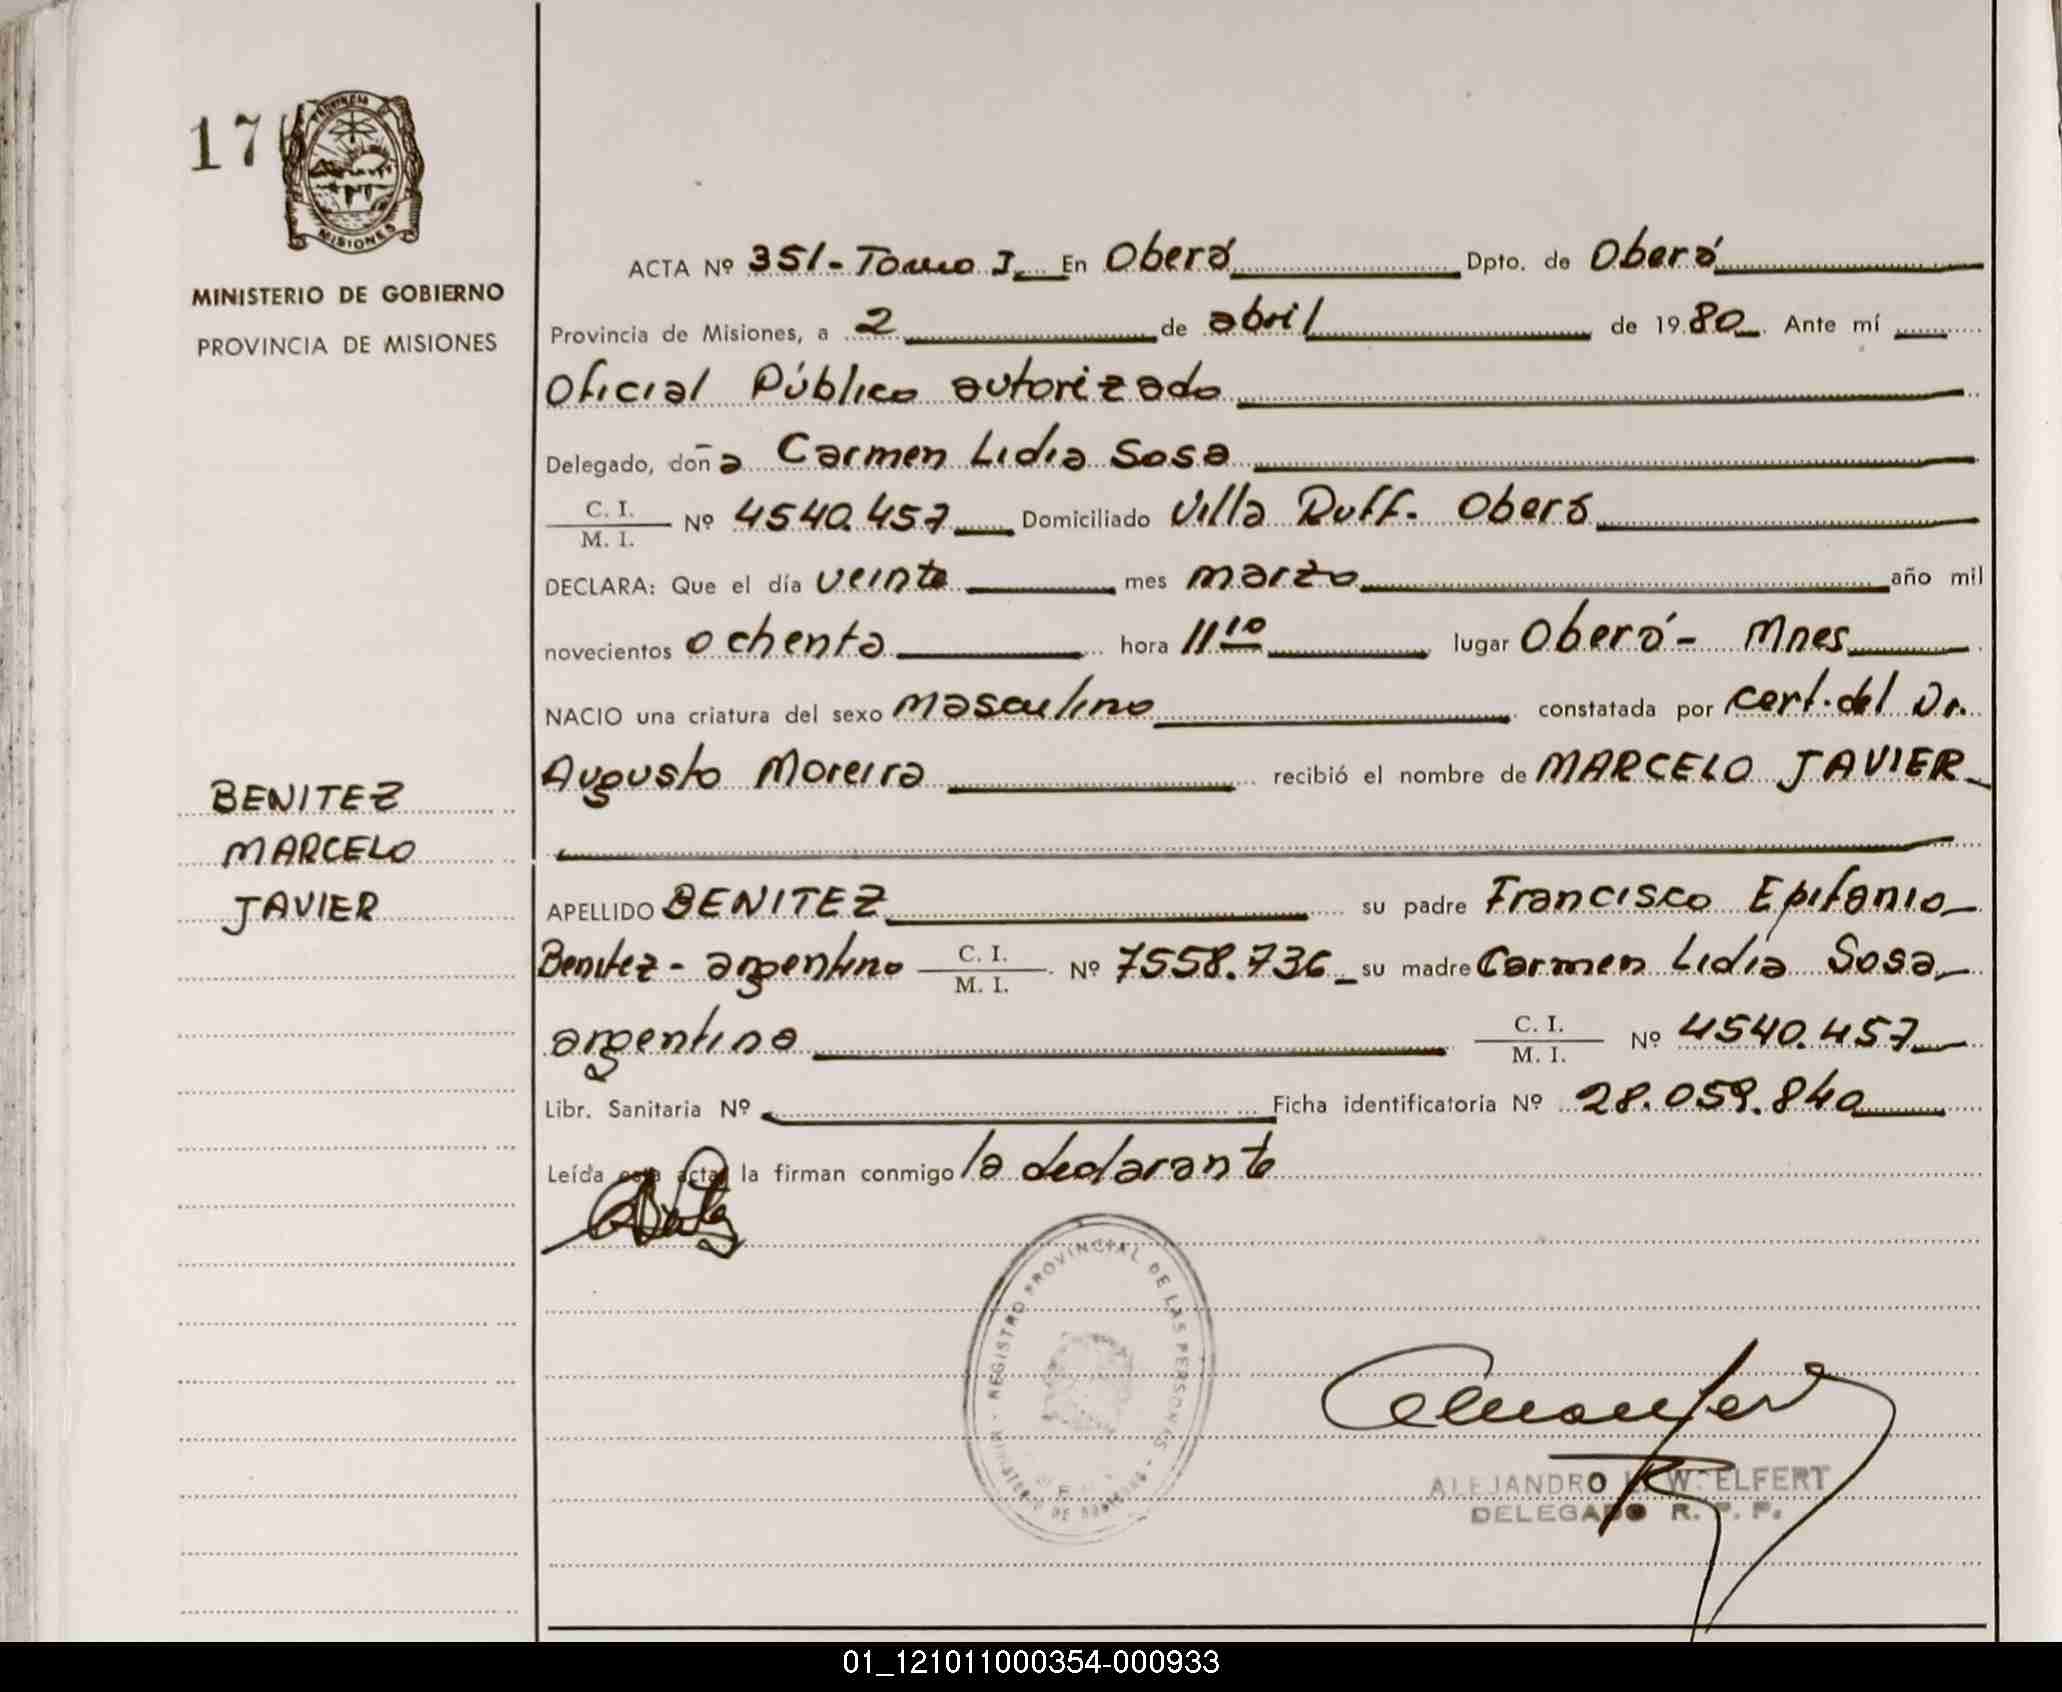 17
PROVINCIA DE
MISIONES
MINISTERIO DE GOBIERNO
PROVINCIA DE MISIONES
BENITEZ
MARCELO
JAVIER
ACTA Nº 351-Tomo I. En Oberá Dpto. de Oberá
Provincia de Misiones, a 2 de abril de 1980. Ante mí
Oficial Público autorizado
Delegado, doña Carmen Lidia Sosa
C. I.
M. I. Nº 4540.457 Domiciliado Villa Ruff. Oberá
DECLARA: Que el día veinte mes marzo año mil
novecientos ochenta hora 11 10 lugar Oberá- Mnes
NACIO una criatura del sexo masculino constatada por cert. del Dr.
Augusto Moreira recibió el nombre de MARCELO JAVIER
APELLIDO BENITEZ su padre Francisco Epifanio
Benitez - argentino C. I. M. I. Nº 7558.736 su madre Carmen Lidia Sosa
argentina C. I. M. I. Nº 4540.457
Libr. Sanitaria Nº Ficha identificatoria Nº 28.059.840
Leída esta acta, la firman conmigo la declarante
REGISTRO PROVINCIAL DE LAS PERSONAS - MINISTERIO DE GOBIERNO -
ALEJANDRO WOELFERT
DELEGADO R. P. P.
01_121011000354-000933